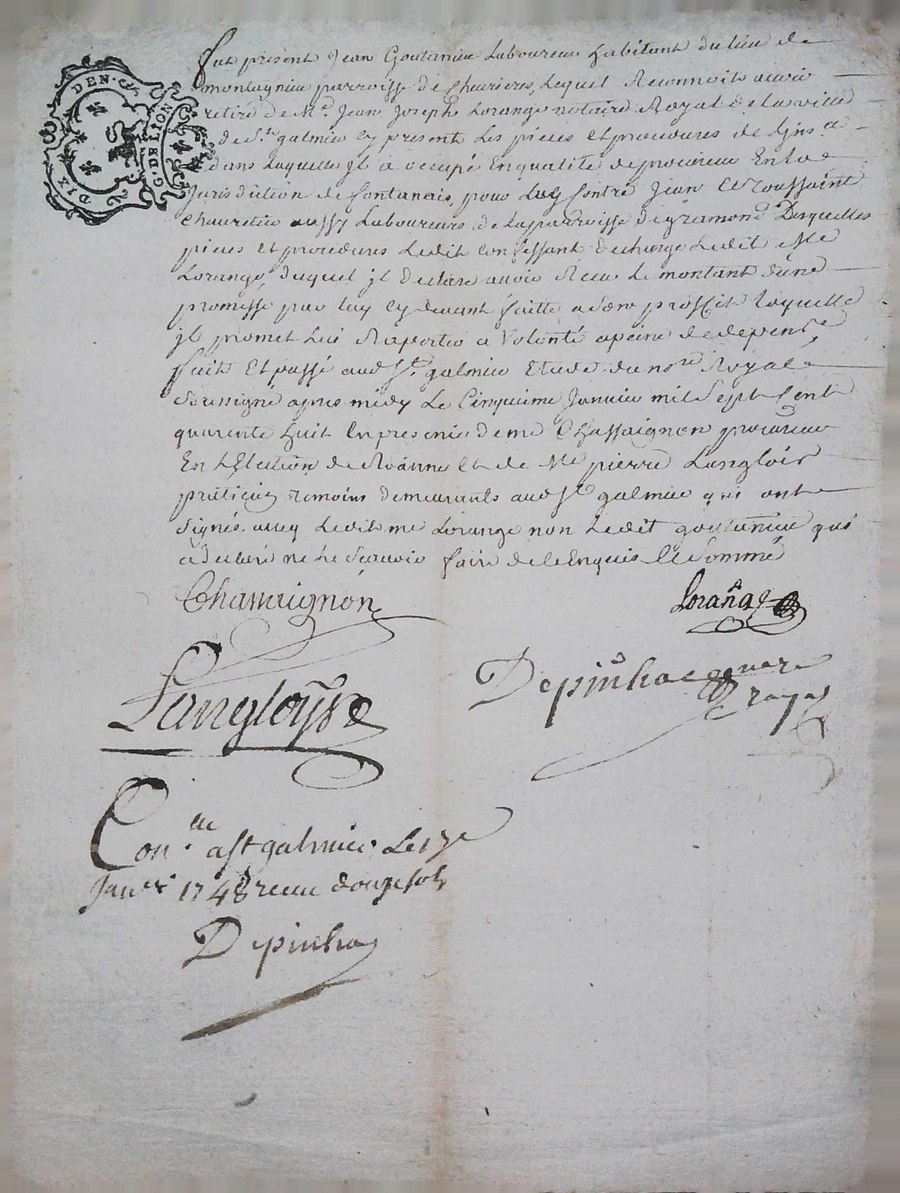 DIX DEN. G. DE LION
fut présent Jean Goutanieu Laboureur habitant du lieu de
montagnieu parroisse de Chevrieres, Lequel Reconnoit avoir
retiré de Mre. Jean Joseph Lorange notaire Royal de la ville
de St. galmier cy présent Les pièces et procedures de
dans Laquelle Jl a occupé En qualité de procureur En la
Jurisdiction de fontanais, pour Luy Contre Jean et toussaint
aussy Laboureurs de la parroisse de gramond Desquelles
pieces et procedures Ledit Confessant decharge Ledit Me
Lorange, duquel jl déclare avoir Receu Le montant d'une
promesse par luy cy devant faitte a son proffit Laquelle
jl promet Lui Raporter a Volonté a peine de depens
fait et passé aud. St. galmier Etude du nore Royal
Soussigné apres midy Le Cinquième Janvier mil Sept Cent
quarente huit En presence de me Chassaignon procureur
En l'Election de Roanne et de Me pierre Langlois
praticien temoins demeurants aud St galmier qui ont
Signés avec Ledit me Lorange non Ledit goutanieu qui
a declaré ne Le Scavoir faire de ce Enquis et Sommé
Chassaignon
Lorange
Langloys
Depinhac
Conlle. a St galmier Le 17e
Janer. 1748 receu douze sols
Depinhac